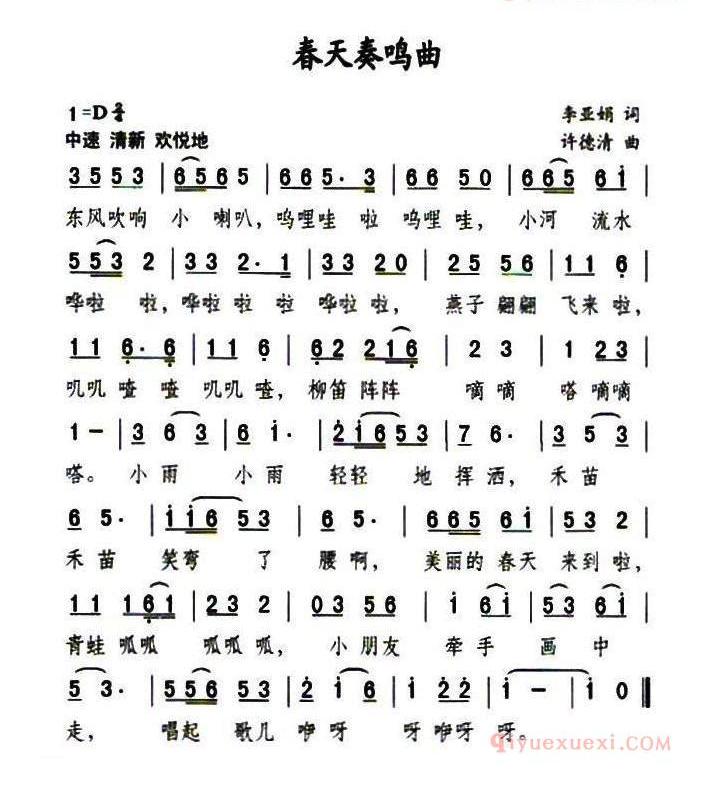 春天奏鸣曲
1=D 2/4 李亚娟 词
中速 清新 欢悦地 许德清 曲
3 5 5 3 | 6 5 6 5 | 6 6 5· 3 | 6 6 5 0 | 6 6 5 6 i |
东风吹响 小 喇叭，呜哩哇 啦 呜哩哇， 小河 流水
5 5 3 2 | 3 3 2· 1 | 3 3 2 0 | 2 5 5 6 | 1 1 6 |
哗啦 啦，哗啦 啦 啦 哗啦 啦， 燕子 翩翩 飞来 啦，
1 1 6· 6 | 1 1 6 | 6 2 2 1 6 | 2 3 | 1 2 3 |
叽叽 喳 喳 叽叽 喳，柳笛 阵阵 嘀嘀 嗒 嘀嘀
1 – | 3 6 3 | 6 i· | 2 i 6 5 3 | 7 6· | 3 5 3 |
嗒。 小 雨 小 雨 轻轻 地 挥 洒， 禾 苗
6 5· | i i 6 5 3 | 2 5· | 6 6 5 6 i | 5 3 2 |
禾 苗 笑弯 了 腰 啊， 美丽的 春天 来到 啦，
1 1 1 6 1 | 2 3 2 | 0 3 5 6 | i 6 i | 3 6 i |
青蛙 呱呱 呱呱 呱， 小 朋友 牵 手 画 中
5 3· | 5 5 6 5 3 | 2 i 6 | i 2 2 | i – | i 0 ‖
走， 唱起 歌儿 咿 呀 呀 咿呀 呀。
qiyuexuexi.COM